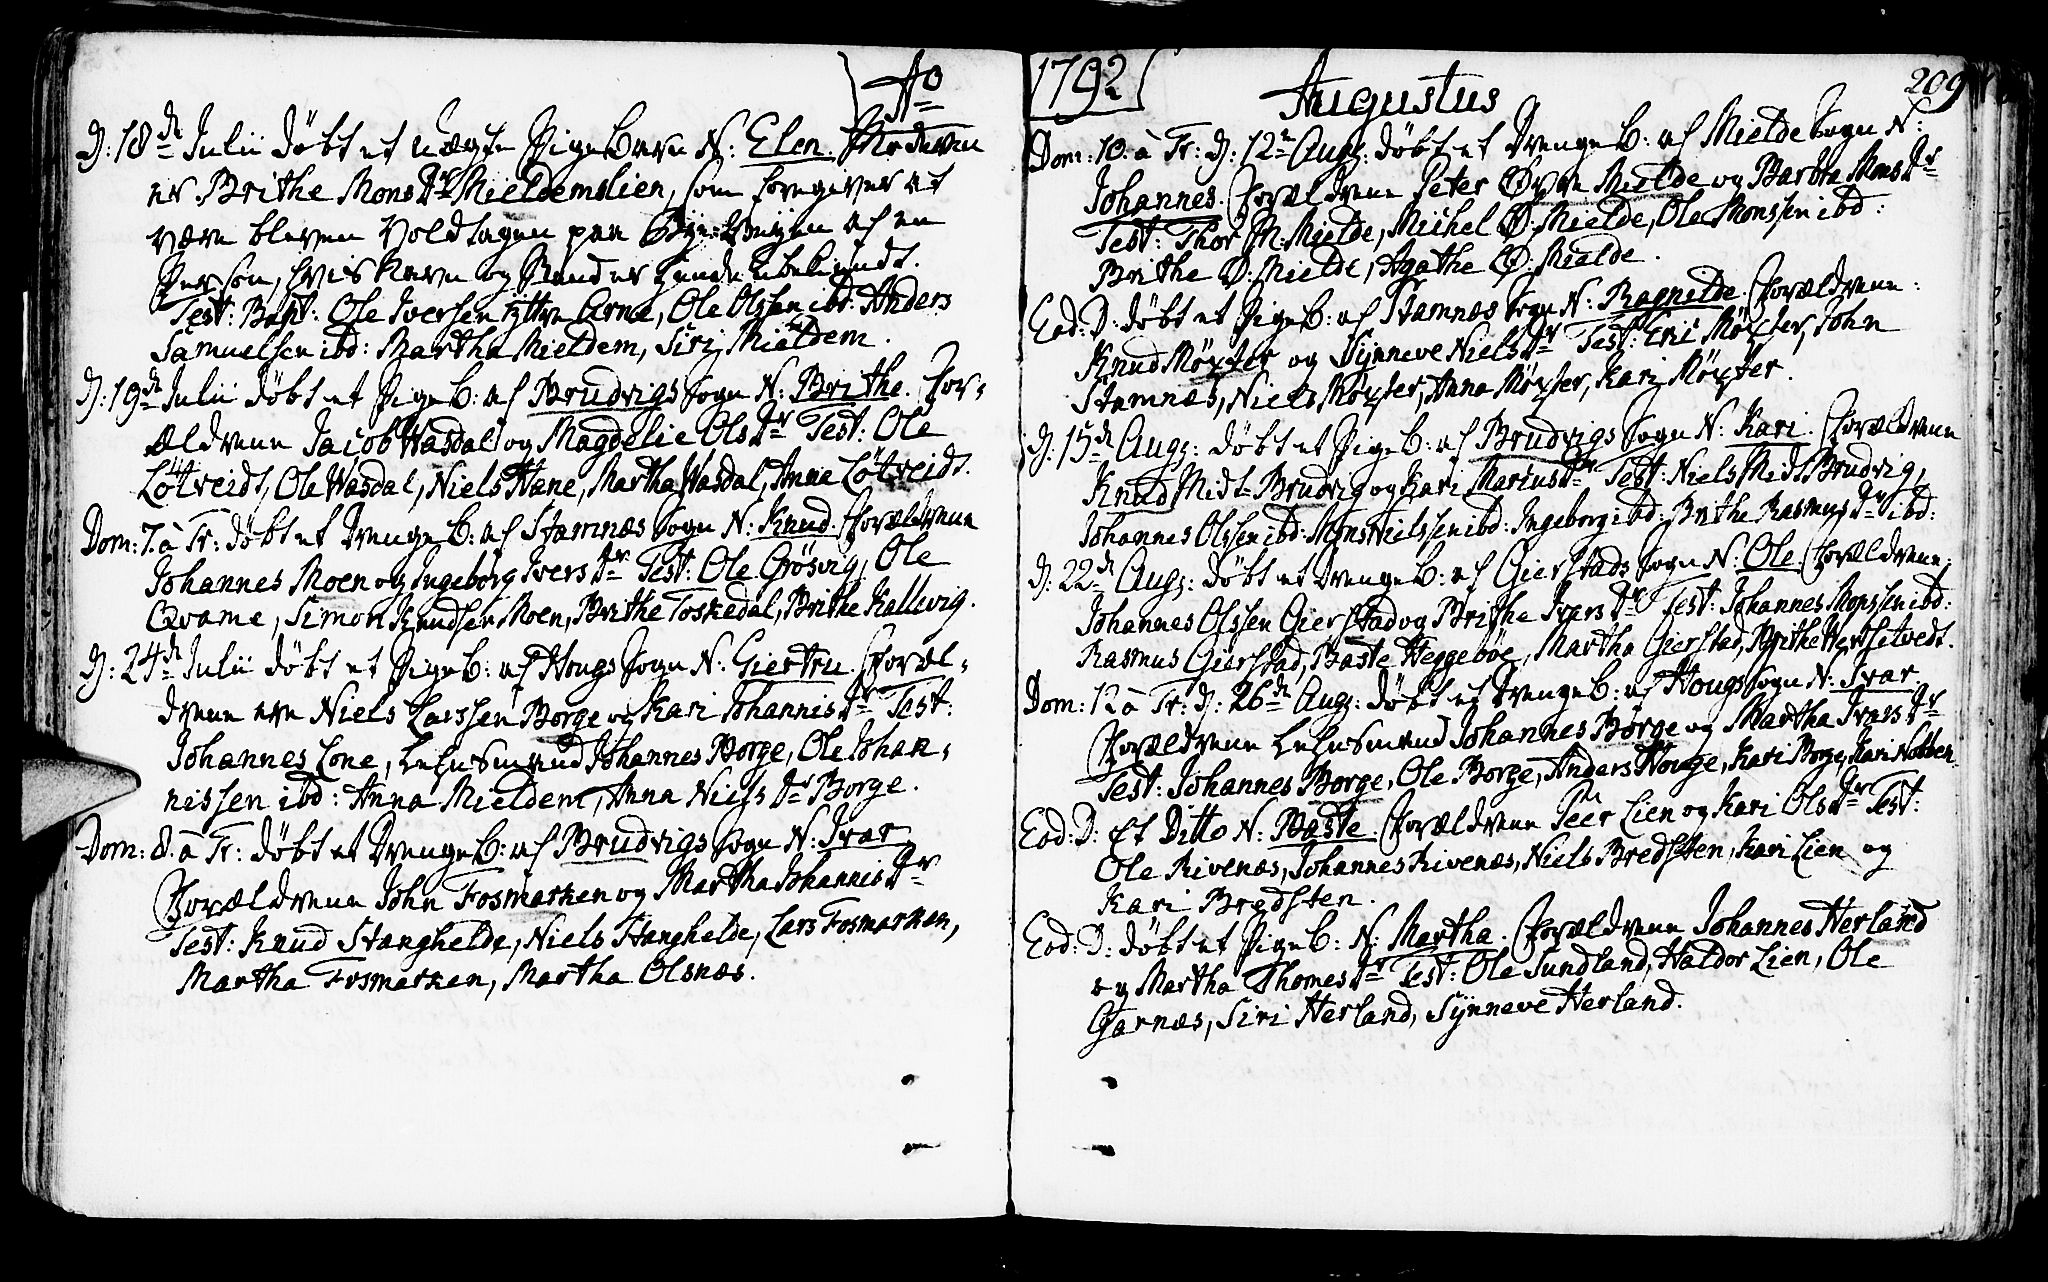 Ao
D: 18de Julii döbt et uægte Pigebarn N: Elen. Moderen
er Brithe Mons Dr Mieldemslien, som foregiver at
være bleven voldtagen paa Bye-Veyen af en
Person, hvis Navn og Stand er hende ubekiendt.
Test: Bapt: Ole Iversen yttre Arne, Ole Olssen ibd: Anders
Samuelsen ibd: Martha Mieldem, Siri Mieldem.
D: 19de Julii döbt et Pigeb: af Brudvigs Sogn N: Brithe. For-
ældrene Jacob Wasdal og Magdelie Ols Dr Test: Ole
Lötveidt, Ole Wasdal, Niels Hane, Martha Wasdal, Anna Lötveidt.
Dom: 7. à Tr: döbt et Drengeb: af Stamnæs Sogn N: Knud. Forældrene
Johannes Moen og Ingeborg Ivers Dr Test: Ole Grösvig, Ole
Qvame, Simon Knudsen Moen, Brithe Toskedal, Brithe Kallevig.
D: 24de Julii döbt et Pigeb: af Hougs Sogn N: Giertru. Foræl-
drene ere Niels Larssen Borge og Kari Johannis Dr Test:
Johannes Lone, Lehnsmand Johannes Borge, Ole Johan-
nissen ibd: Anna Mieldem, Anna Niels Dr Borge.
Dom: 8. à Tr: döbt et Drengeb: af Brudvigs Sogn N: Ivar
Forældrene John Fosmarken og Martha Johannis Dr
Test: Knud Stanghelde, Niels Stanghelde, Lars Fosmarken,
Martha Fosmarken, Martha Olsnæs.
1792
Augustus
209
Dom: 10. à Tr: D: 12te Aug: döbt et Drengeb: af Mielde Sogn N:
Johannes. Forældrene Peter Øvre Mielde og Barbra Mons Dr
Test: Thor M: Mielde, Michel Ø: Mielde, Ole Monssen ibd:
Brithe Ø: Mielde, Agathe Ø: Mielde.
Eod: D: döbt et Pigeb: af Stamnæs Sogn N: Ragnilde. Forældrene:
Knud Möxter og Synneve Niels Dr Test: Eric Möxter, John
Stamnæs, Niels Möxter, Anna Möxter, Kari Möxter.
D: 15de Aug: döbt et Pigeb: af Brudvigs Sogn N: Kari. Forældrene
Knud Midt-Brudvig og Kari Marius Dr Test: Niels Midt Brudvig,
Johannes Olssen ibd: Mons Nielssen ibd: Ingeborg ibd: Brithe Rasmus Dr ibd:
D: 22de Aug: döbt et Drengeb: af Gierstads Sogn N: Ole. Forældrene:
Johannes Olssen Gierstad og Brithe Ivars Dr Test: Johannes Monssen ibd:
Rasmus Gierstad, Baste Heggebøe, Martha Gierstad, Brithe Hersetvedt.
Dom: 12 à Tr: D: 26de Aug: döbt et Drengeb: af Hougs Sogn N: Ivar.
Forældrene Lehnsmand Johannes Börge og Martha Ivars Dr
Test: Johannes Borge, Ole Borge, Anders Houge, Kari Borge, Kari
Eod: D: Et Ditto N: Baste Forældrene Peer Lien og Kari Ols Dr Test:
Ole Rivenæs, Johannes Rivenæs, Niels Bredsten, Kari Lien og
Kari Bredsten.
Eod: D: döbt et Pigeb: N: Martha. Forældrene Johannes Herland
og Martha Thomes Dr Test: Ole Sundland, Haldor Lien, Ole
Garnæs, Siri Herland, Synneve Herland.